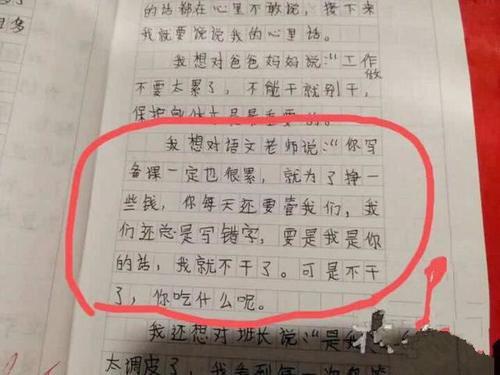 的话都在心里不敢说，接下来
我就要说说我的心里话。
我想对爸爸妈妈说：“工作做
不要太累了，不能干就别干，
保护身体才是最重要的。
我想对语文老师说：“你写
备课一定也很累，就为了挣一
些钱，你每天还要管我们，我
们还总是写错字，要是我是你
的话，我就不干了。可是不干
了，你吃什么呢。
我还想对班长说：“是我
太调皮了，我看到每一次